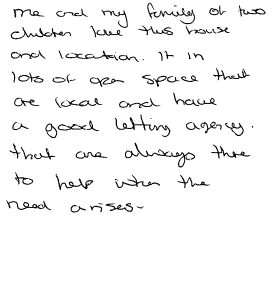 me and my family of two
children love this house
and location. It in
lots of open space that
are local and have
a good letting agency.
that are always thre
to help when the
need arises-